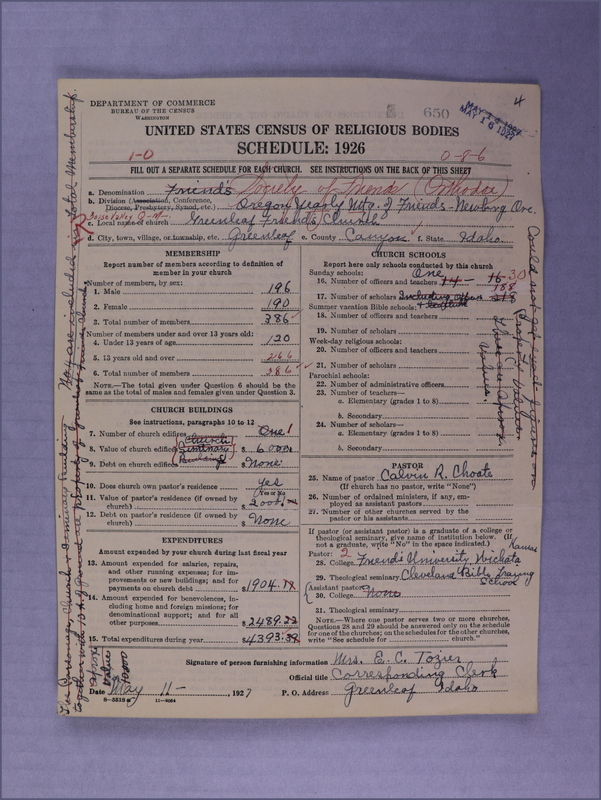 4
DEPARTMENT OF COMMERCE
BUREAU OF THE CENSUS
WASHINGTON
650
MAY 16 1927
UNITED STATES CENSUS OF RELIGIOUS BODIES
SCHEDULE: 1926
1-0
0-8-6
FILL OUT A SEPARATE SCHEDULE FOR EACH CHURCH. SEE INSTRUCTIONS ON THE BACK OF THIS SHEET
a. Denomination Friends Society of Friends (Orthodox)
b. Division (Association, Conference, Diocese, Presbytery, Synod, etc.) Oregon Yearly Mtg. of Friends-Newberg Ore.
c. Local name of church Greenleaf Friends Church
d. City, town, village, or township, etc. Greenleaf e. County Canyon f. State Idaho.
MEMBERSHIP
Report number of members according to definition of member in your church
Number of members, by sex:
1. Male 196
2. Female 190
3. Total number of members 386
Number of members under and over 13 years old:
4. Under 13 years of age 120
5. 13 years old and over 266
6. Total number of members 386
NOTE.—The total given under Question 6 should be the same as the total of males and females given under Question 3.
CHURCH BUILDINGS
See instructions, paragraphs 10 to 12
7. Number of church edifices One 1
8. Value of church edifices Church $ 6000
9. Debt on church edifices None
10. Does church own pastor's residence Yes
(Yes or No)
11. Value of pastor's residence (if owned by church) $ 2000
12. Debt on pastor's residence (if owned by church) $ None
EXPENDITURES
Amount expended by your church during last fiscal year
13. Amount expended for salaries, repairs, and other running expenses; for improvements or new buildings; and for payments on church debt $1904.
14. Amount expended for benevolences, including home and foreign missions; for denominational support; and for all other purposes $2489.
15. Total expenditures during year $4393.
CHURCH SCHOOLS
Report here only schools conducted by this church
Sunday schools: One
16. Number of officers and teachers 14 — 16-30
17. Number of scholars Including officers 188
Summer vacation Bible schools:
18. Number of officers and teachers
19. Number of scholars
Week-day religious schools:
20. Number of officers and teachers
21. Number of scholars
Parochial schools:
22. Number of administrative officers
23. Number of teachers—
a. Elementary (grades 1 to 8)
b. Secondary
24. Number of scholars—
a. Elementary (grades 1 to 8)
b. Secondary
PASTOR
25. Name of pastor Calvin R. Choate
(If church has no pastor, write "None")
26. Number of ordained ministers, if any, employed as assistant pastors
27. Number of other churches served by the pastor or his assistants
If pastor (or assistant pastor) is a graduate of a college or theological seminary, give name of institution below. (If not a graduate, write "No" in the space indicated.)
Pastor: 2
28. College Friends University Wichita Kansas
29. Theological seminary Cleveland Bible Training School
Assistant pastor:
30. College None
31. Theological seminary
NOTE.—Where one pastor serves two or more churches, Questions 28 and 29 should be answered only on the schedule for one of the churches; on the schedules for the other churches, write "See schedule for church."
Signature of person furnishing information Mrs. E. C. Tozier
Official title Corresponding Clerk
Date May 11- , 1927 P. O. Address Greenleaf Idaho